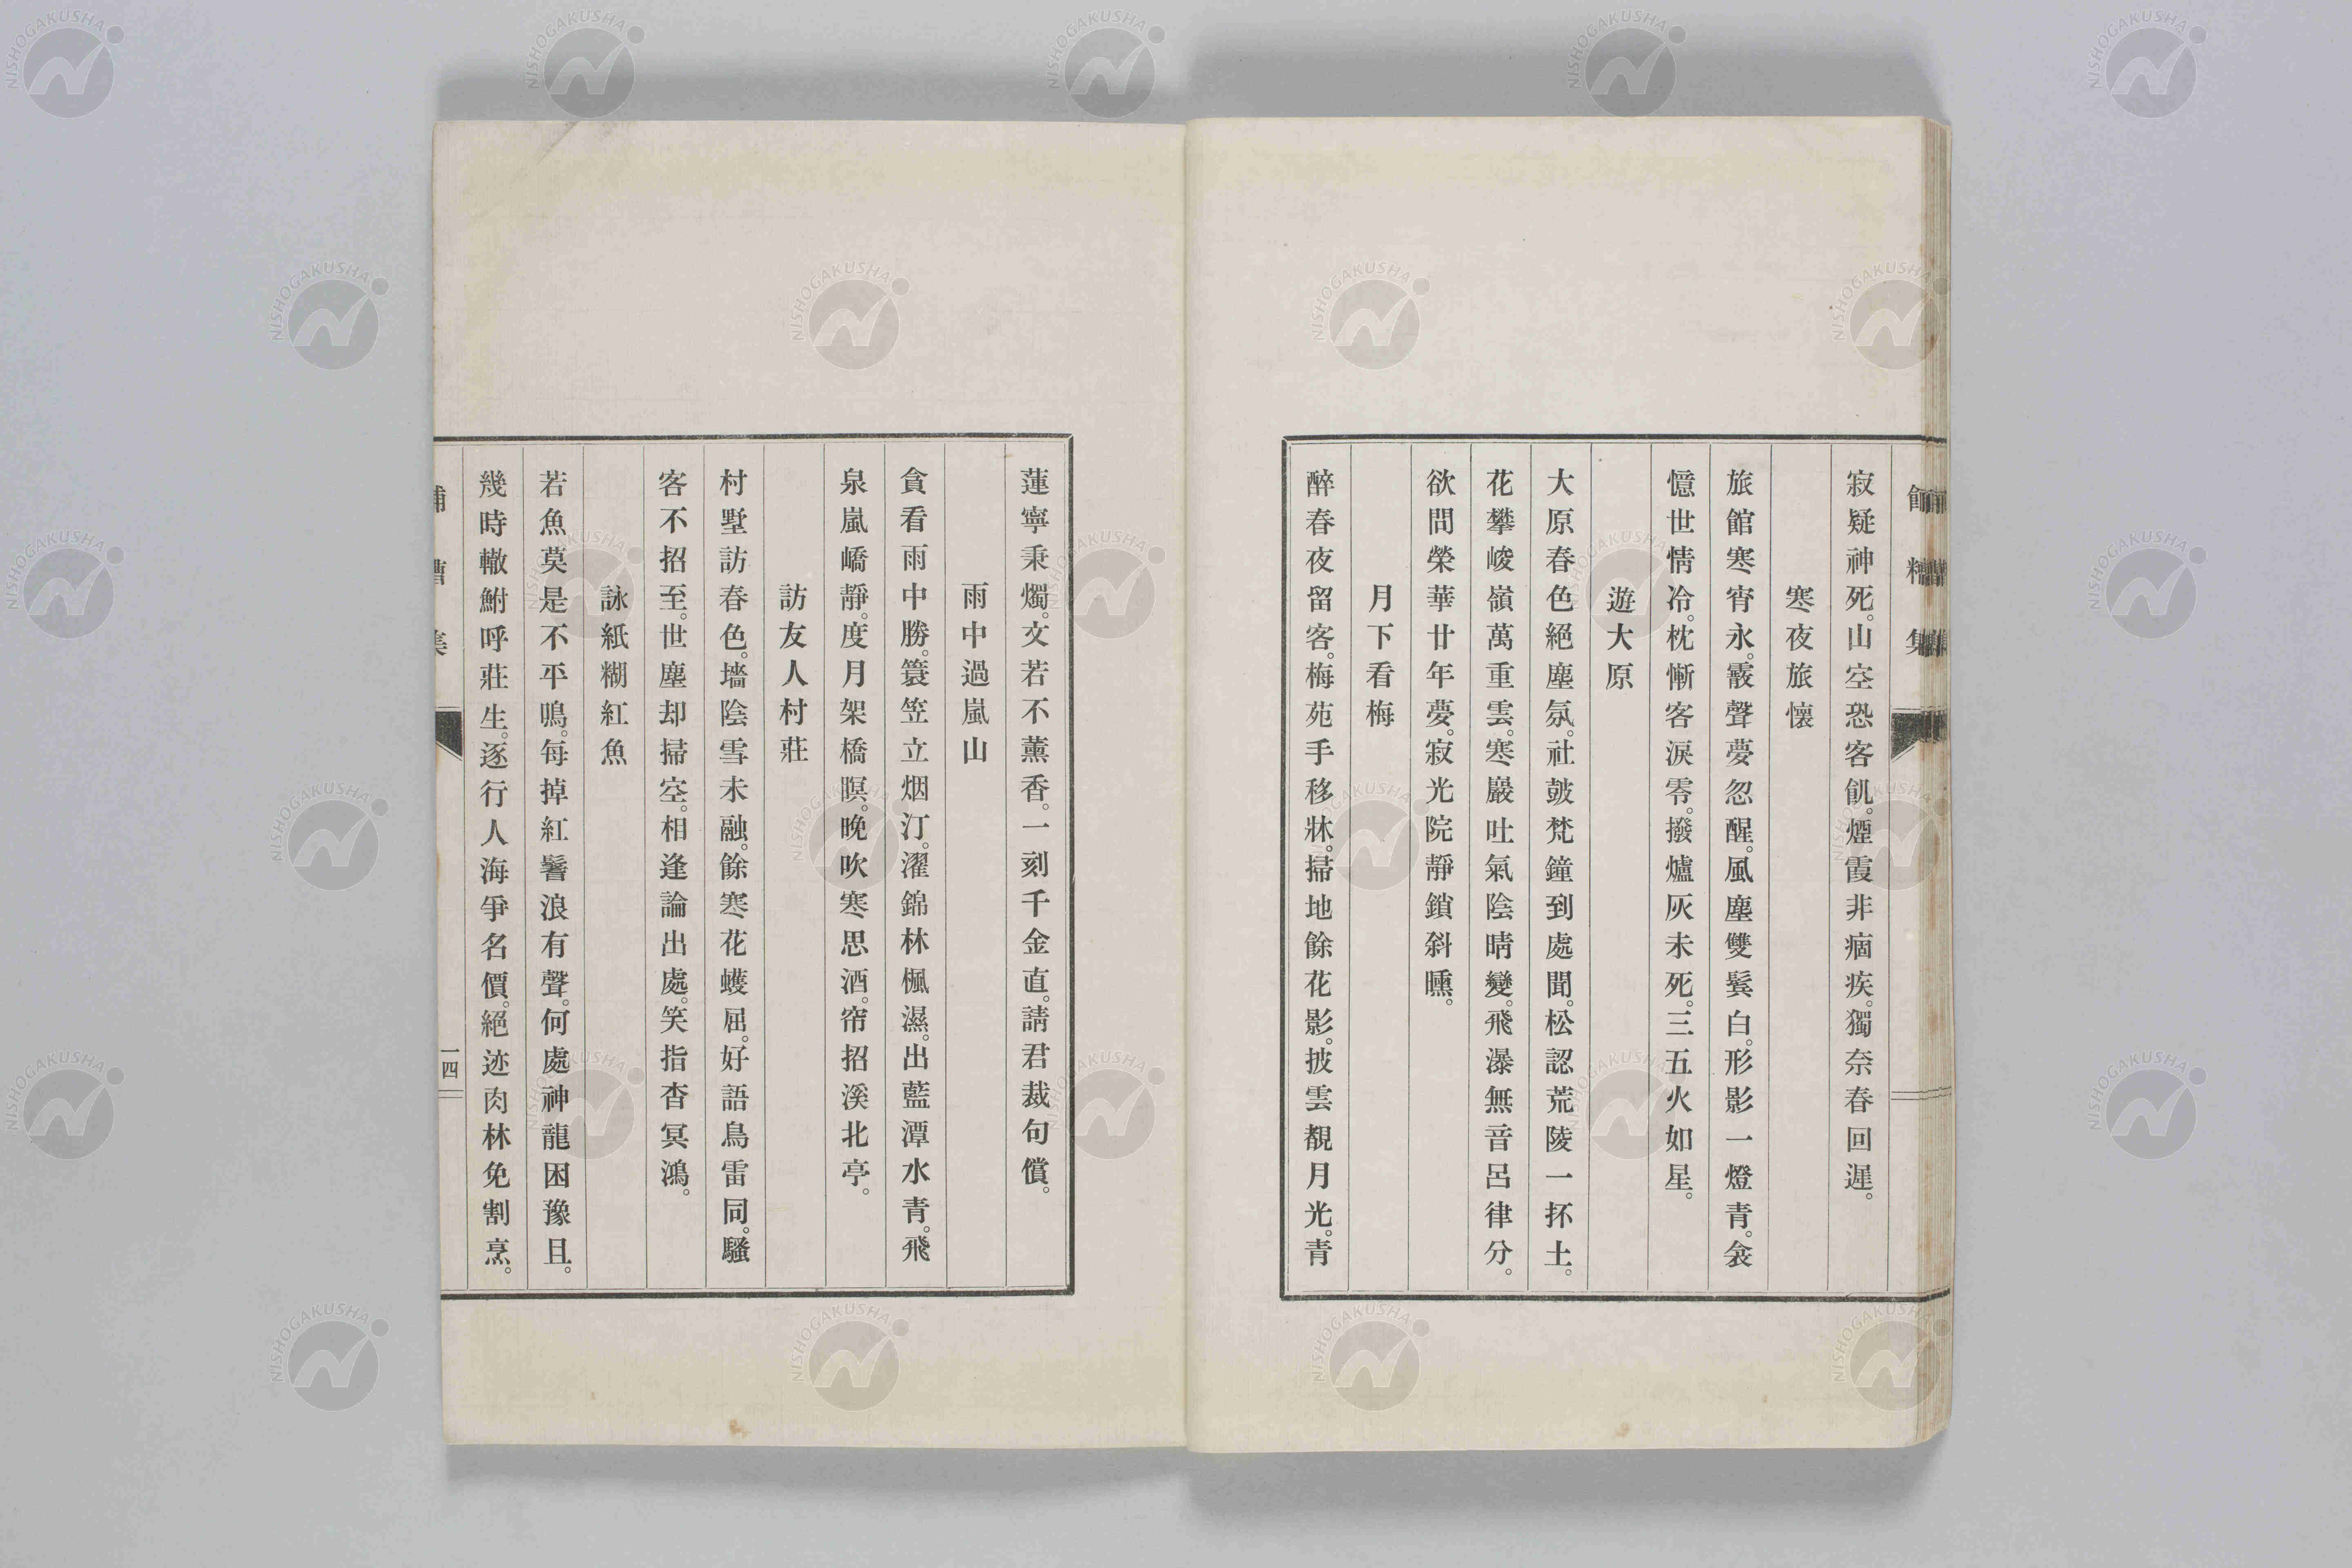 寂疑神死。山空恐客飢。煙霞非痼疾。獨奈春回遲。
寒夜旅懷
旅館寒宵永。霰聲夢忽醒。風塵雙鬂白。形影一燈青。衾
憶世情冷。枕慚客淚零。撥爐灰未死。三五火如星。
遊大原
大原春色絕塵氛。社皷梵鐘到處聞。松認荒陵一抔土。
花攀峻嶺萬重雲。寒巖吐氣陰晴變。飛瀑無音呂律分。
欲問榮華廿年夢。寂光院靜鎖斜曛。
月下看梅
醉春夜留客。梅苑手移牀。掃地餘花影。披雲覩月光。青
蓮寧秉燭。文若不薰香。一刻千金直。請君裁句償。
雨中過嵐山
貪看雨中勝。簑笠立烟汀。濯錦林楓濕。出藍潭水青。飛
泉嵐嶠靜。度月架橋暝。晚吹寒思酒。帘招溪北亭。
訪友人村莊
村墅訪春色。墻陰雪未融。餘寒花蠖屈。好語鳥雷同。騷
客不招至。世塵却掃空。相逢論出處。笑指杳冥鴻。
詠紙糊紅魚
若魚莫是不平鳴。每掉紅鬐浪有聲。何處神龍困豫且。
幾時轍鮒呼莊生。逐行人海爭名價。絕迹肉林免割烹。
一四
NISHOGAKUSHA